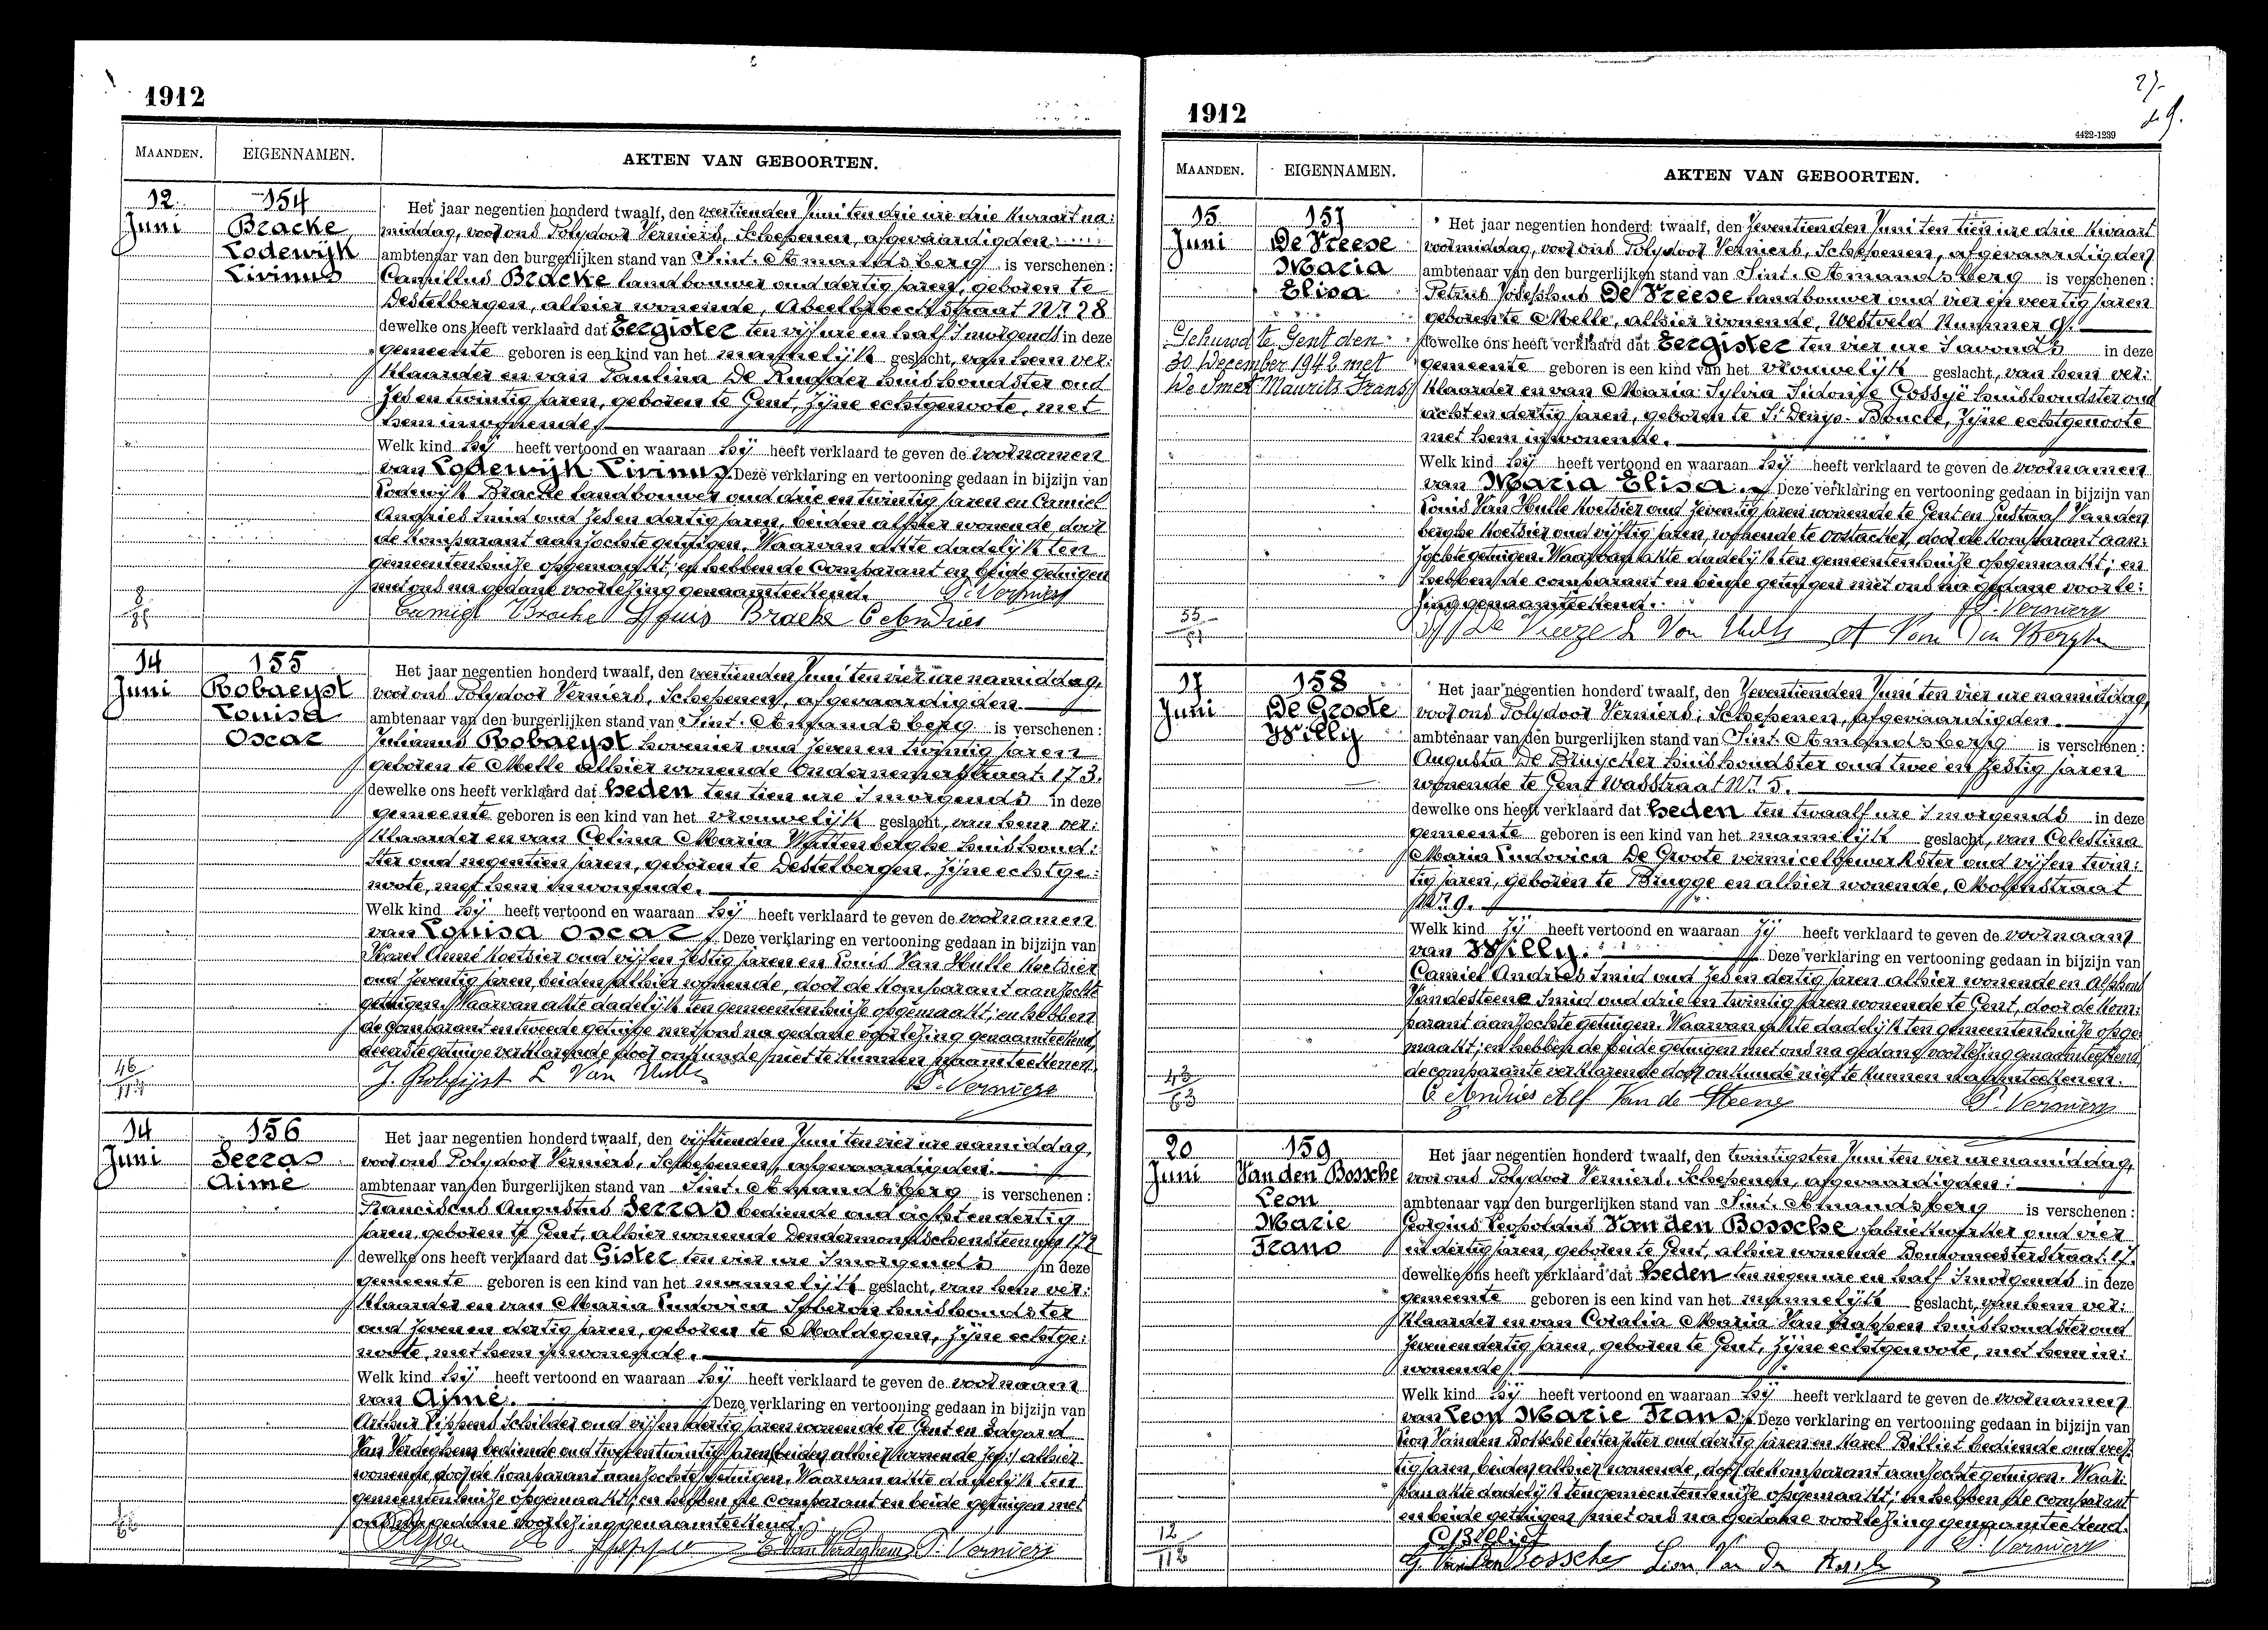 1912
MAANDEN. EIGENNAMEN. AKTEN VAN GEBOORTEN.
12 Juni
154
Bracke
Lodewijk
Livinus
Het jaar negentien honderd twaalf, den veertienden Juni ten drie ure drie kwaart na:
middag, voor ons Polydoor Verniers, Schepenen, afgevaardigden
ambtenaar van den burgerlijken stand van Sint. Amandsberg is verschenen:
Camillus Bracke landbouwer oud dertig jaren, geboren te
Destelbergen, alhier wonende, Abeelbeekstraat Nr. 28
dewelke ons heeft verklaard dat Eergister ten vijf ure en half 's morgends in deze
gemeente geboren is een kind van het mannelijk geslacht, van hem ver:
klaarder en van Paulina De Ruyder huishoudster oud
zes en twintig jaren, geboren te Gent, zijne echtgenoote, met
hem inwonende.
Welk kind hij heeft vertoond en waaraan hij heeft verklaard te geven de voornamen
van Lodewijk Livinus. Deze verklaring en vertooning gedaan in bijzijn van
Lodewijk Bracke landbouwer oud drie en twintig jaren en Camiel
Andries smid oud zes en dertig jaren, beiden alhier wonende door
de komparant aanzochte getuigen. Waarvan akte dadelijk ten
gemeentenhuize opgemaakt; en hebben de comparant en beide getuigen
met ons na gedane voorlezing genaamteekend. P. Verniers
Camiel Bracke Louis Bracke C Andries
14 Juni
155
Robaeyst
Louisa
Oscar
Het jaar negentien honderd twaalf, den veertienden Juni ten vier ure namiddag,
voor ons Polydoor Verniers, Schepenen, afgevaardigden
ambtenaar van den burgerlijken stand van Sint. Amandsberg is verschenen:
Julianus Robaeyst hovenier oud zeven en twintig jaren
geboren te Melle alhier wonende Ondernemerstraat 173.
dewelke ons heeft verklaard dat heden ten tien ure 's morgends in deze
gemeente geboren is een kind van het vrouwelijk geslacht, van hem ver:
klaarder en van Celina Maria Wittenberghe huishoud:
ster oud negentien jaren, geboren te Destelbergen, zijne echtge:
noote, met hem inwonende.
Welk kind hij heeft vertoond en waaraan hij heeft verklaard te geven de voornamen
van Louisa Oscar. Deze verklaring en vertooning gedaan in bijzijn van
Karel Anné koetsier oud vijf en zestig jaren en Louis Van Hulle koetsier
oud zeventig jaren beiden alhier wonende, door de komparant aanzochte
getuigen. Waarvan akte dadelijk ten gemeentenhuize opgemaakt; en hebben
de comparant en tweede getuige met ons na gedane voorlezing genaamteekend,
de eerste getuige verklarende door onkunde niet te kunnen naamteekenen.
J. Robijst L Van Hulle P. Verniers
14 Juni
156
Serras
Aimé
Het jaar negentien honderd twaalf, den vijftienden Juni ten vier ure namiddag,
voor ons Polydoor Verniers, Schepenen, afgevaardigden
ambtenaar van den burgerlijken stand van Sint. Amandsberg is verschenen:
Franciscus Augustus Serras bediende oud acht en dertig
jaren, geboren te Gent, alhier wonende Dendermondschensteenweg 172
dewelke ons heeft verklaard dat Gister ten vier ure 's morgends in deze
gemeente geboren is een kind van het mannelijk geslacht, van hem ver:
klaarder en van Maria Ludovica huishoudster
oud zeven en dertig jaren, geboren te Maldegem, zijne echtge:
noote, met hem inwonende.
Welk kind hij heeft vertoond en waaraan hij heeft verklaard te geven de voornaam
van Aimé. Deze verklaring en vertooning gedaan in bijzijn van
Arthur Lippens schilder oud vijf en dertig jaren wonende te Gent en Edgard
Van Verdeghem bediende oud twee en twintig jaren (beiden alhier wonende alhier
wonende, door de komparant aanzochte getuigen. Waarvan akte dadelijk ten
gemeentenhuize opgemaakt; en hebben de comparant en beide getuigen met
ons na gedane voorlezing genaamteekend.
E Van Verdeghem P. Verniers
1912
4422-1239
MAANDEN. EIGENNAMEN. AKTEN VAN GEBOORTEN.
15 Juni
157
De Vreese
Maria
Elisa
Gehuwd te Gent den
30 December 1942 met
De Smet Maurits Frans
Het jaar negentien honderd twaalf, den zeventienden Juni ten tien ure drie kwaart
voormiddag, voor ons Polydoor Verniers, Schepenen, afgevaardigden
ambtenaar van den burgerlijken stand van Sint. Amandsberg is verschenen:
Petrus Josephus De Vreese landbouwer oud vier en veertig jaren
geboren te Melle, alhier wonende, Westveld Nummer 9.
dewelke ons heeft verklaard dat Eergister ten vier ure 's avonds in deze
gemeente geboren is een kind van het vrouwelijk geslacht, van hem ver:
klaarder en van Maria Sylvia Sidonie Gossyë huishoudster oud
acht en dertig jaren, geboren te St. Denys-Boucle, zijne echtgenoote
met hem inwonende.
Welk kind hij heeft vertoond en waaraan hij heeft verklaard te geven de voornamen
van Maria Elisa. Deze verklaring en vertooning gedaan in bijzijn van
Louis Van Hulle koetsier oud zeventig jaren wonende te Gent en Gustaaf Vanden
berghe koetsier oud vijftig jaren, wonende te Oostacker, door de komparant aan:
zochte getuigen. Waarvan akte dadelijk ten gemeentenhuize opgemaakt; en
hebben de comparant en beide getuigen met ons na gedane voorle:
zing genaamteekend. P. Verniers
De Vreeze L Van Hulle Van Den Berghe
55
17 Juni
158
De Groote
Willy
Het jaar negentien honderd twaalf, den zeventienden Juni ten vier ure namiddag,
voor ons Polydoor Verniers, Schepenen, afgevaardigden.
ambtenaar van den burgerlijken stand van Sint. Amandsberg is verschenen:
Augusta De Bruycker huishoudster oud twee en zestig jaren
wonende te Gent Wasstraat Nr. 5.
dewelke ons heeft verklaard dat heden ten twaalf ure 's morgends in deze
gemeente geboren is een kind van het mannelijk geslacht, van Celestina
Maria Ludovica De Groote vermicelbewerkster oud vijf en twin:
tig jaren, geboren te Brugge en alhier wonende, Molenstraat
Nr. 9.
Welk kind zij heeft vertoond en waaraan zij heeft verklaard te geven de voornaam
van Willy. Deze verklaring en vertooning gedaan in bijzijn van
Camiel Andries smid oud zes en dertig jaren alhier wonende en Alphons
Vandesteene smid oud drie en twintig jaren wonende te Gent, door de kom:
parant aanzochte getuigen. Waarvan akte dadelijk ten gemeentenhuize opge:
maakt; en hebben de beide getuigen met ons na gedane voorlezing genaamteekend,
de comparante verklarende door onkunde niet te kunnen naamteekenen.
C Andries Alf Van de Steene P. Verniers
43
63
20 Juni
159
Van den Bossche
Leon
Marie
Frans
Het jaar negentien honderd twaalf, den twintigsten Juni ten vier ure namiddag,
voor ons Polydoor Verniers, Schepenen, afgevaardigden:
ambtenaar van den burgerlijken stand van Sint. Amandsberg is verschenen:
Georgius Leopoldus Van den Bossche fabriekwerker oud vier
en dertig jaren, geboren te Gent, alhier wonende Boutomeesterstraat 17.
dewelke ons heeft verklaard dat heden ten negen ure en half 's morgends in deze
gemeente geboren is een kind van het mannelijk geslacht, van hem ver:
klaarder en van Coralia Maria Van huishoudster oud
zeven en dertig jaren, geboren te Gent, zijne echtgenoote, met hem in:
wonende.
Welk kind hij heeft vertoond en waaraan hij heeft verklaard te geven de voornamen
van Leon Marie Frans. Deze verklaring en vertooning gedaan in bijzijn van
Leon Vanden Bossche letterzetter oud dertig jaren en Karel Billiet bediende oud veer:
tig jaren, beiden alhier wonende, door de komparant aanzochte getuigen. Waar:
van akte dadelijk ten gemeentenhuize opgemaakt; en hebben de comparant
en beide getuigen met ons na gedane voorlezing genaamteekend.
C Billiet P. Verniers
G. Van Den Bossche Leon Van Den Bossche
12
112